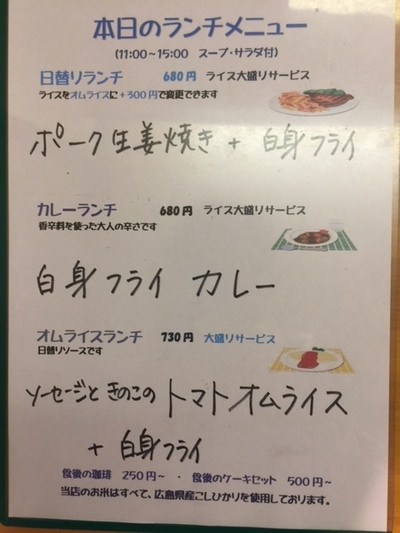 本日のランチメニュー
(11:00~15:00 スープ・サラダ付)
日替りランチ 680円 ライス大盛りサービス
ライスをオムライスに+300円で変更できます
ポーク生姜焼き + 白身フライ
カレーランチ 680円 ライス大盛りサービス
香辛料を使った大人の辛さです
白身フライ カレー
オムライスランチ 730円 大盛りサービス
日替りソースです
ソーセージと きのこの トマトオムライス
+ 白身フライ
食後の珈琲 250円~ ・ 食後のケーキセット 500円~
当店のお米はすべて、広島県産こしひかりを使用しております。